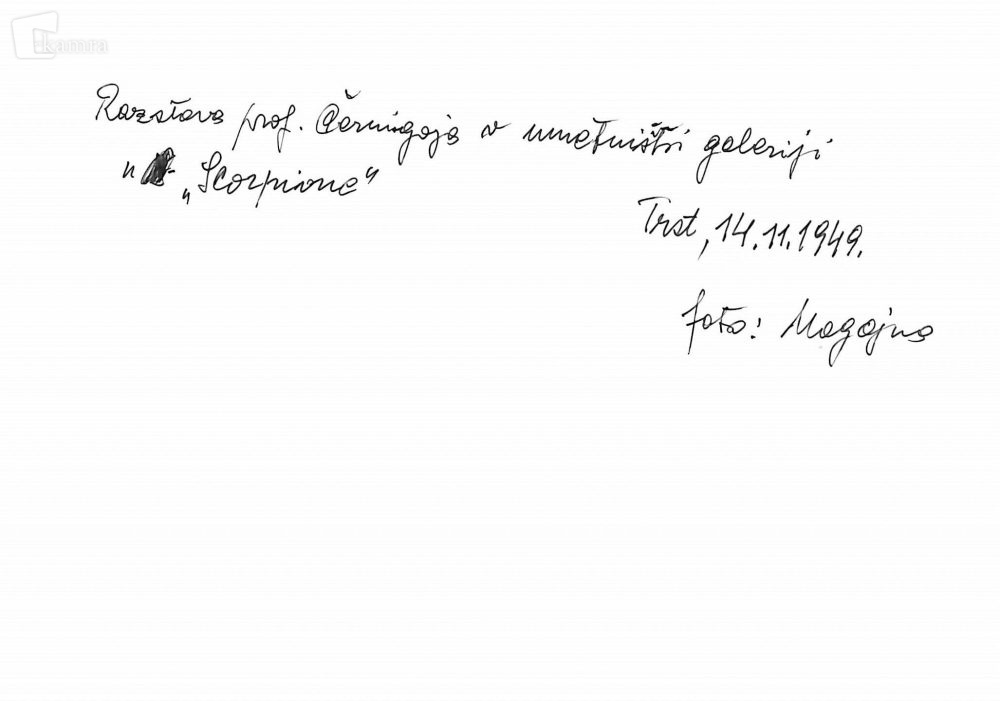 kamra
Razstava prof. Černigoja v umetniški galeriji
" „Scorpione“
Trst, 14.11.1949.
foto: Magajna